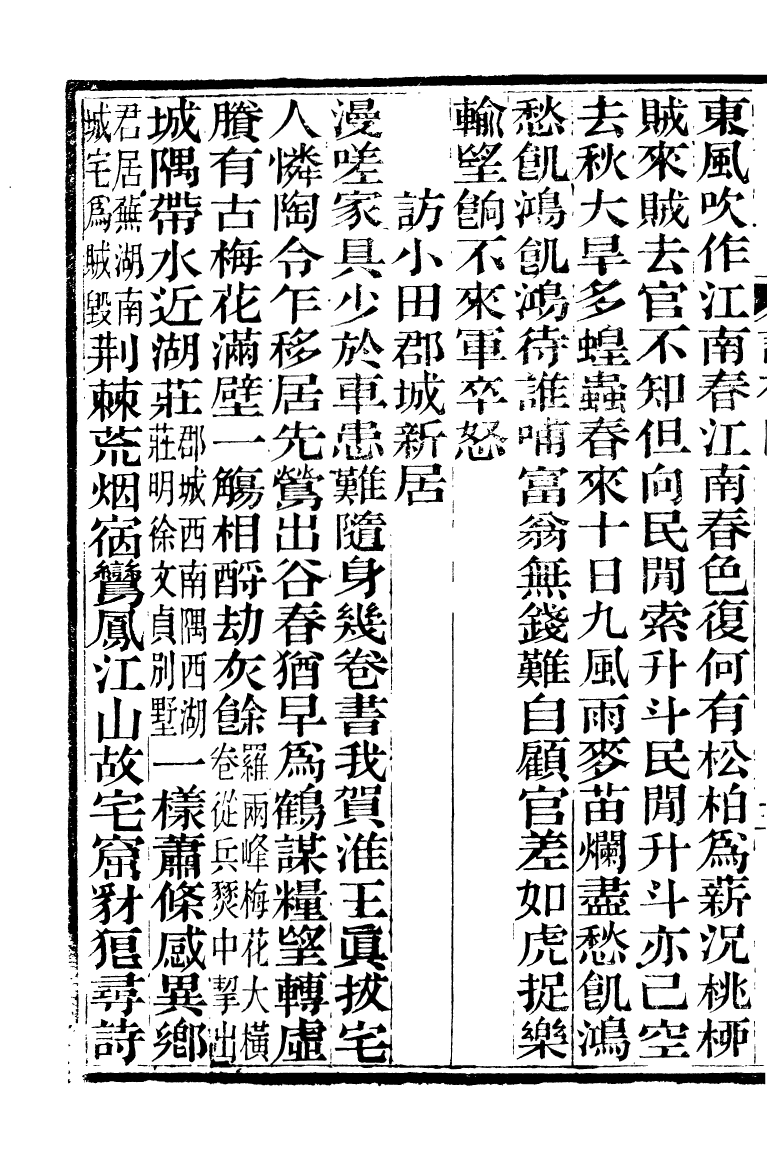 東風吹作江南春江南春色復何有松柏爲薪況桃柳
賊來賊去官不知但向民閒索升斗民閒升斗亦已空
去秋大旱多蝗蟲春來十日九風雨麥苗爛盡愁飢鴻
愁飢鴻飢鴻待誰哺富翁無錢難自顧官差如虎捉樂
輸望餉不來軍卒怒
訪小田郡城新居
漫嗟家具少於車患難隨身幾卷書我賀淮王眞拔宅
人憐陶令乍移居先鶯出谷春猶早爲鶴謀糧望轉虛
賸有古梅花滿壁一觴相酹劫灰餘羅兩峰梅花大橫卷從兵燹中挈出
城隅帶水近湖莊郡城西南隅西湖莊明徐文貞別墅一樣蕭條感異鄉
君居蕪湖南城宅爲賊毀荆棘荒烟宿鸞鳳江山故宅窟豺狼尋詩